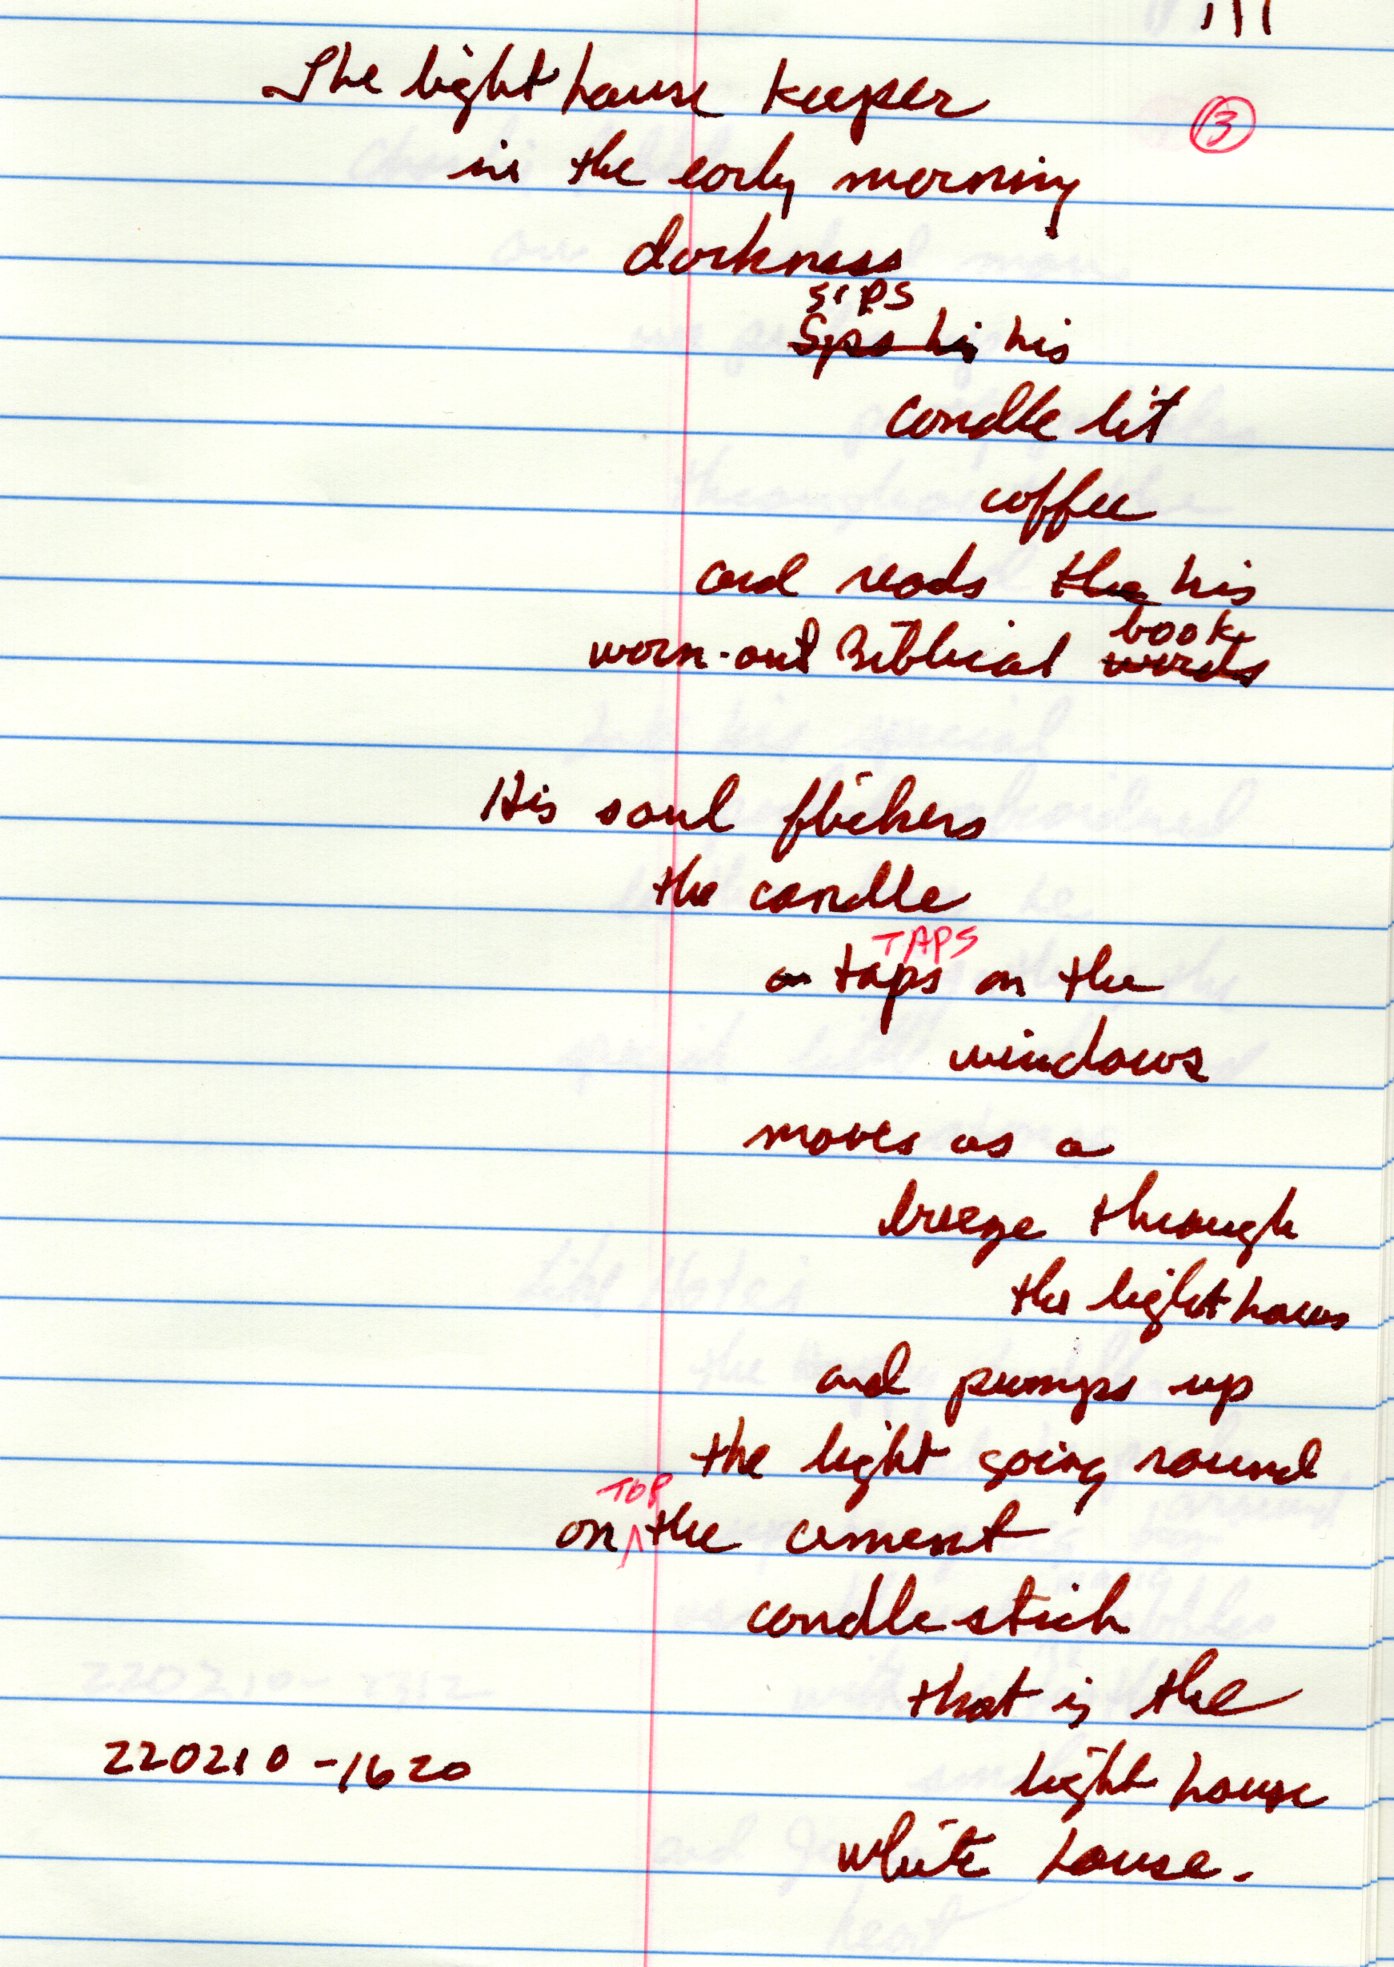 The light house keeper
13
in the early morning
darkness
sips
Sps his his
candle lit
coffee
and reads the his
book
worn-out Biblical words
His soul flickers
the candle
TAPS
on taps on the
windows
moves as a
breeze through
the light house
and pumps up
the light going round
TOP
on the cement
candle stick
that is the
220210-1620
light house
white house.